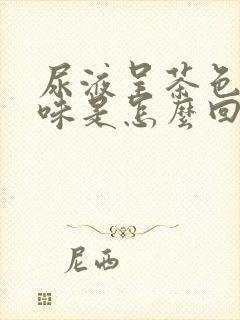 尿液呈茶色
味是怎麼回
尼西